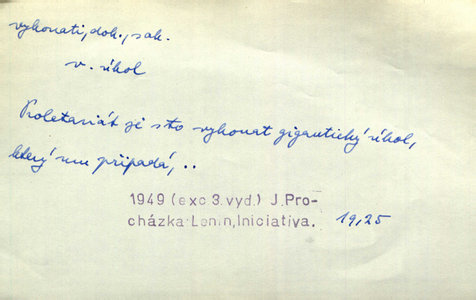 vykonati, dok., sak.
v. úkol
Proletariát je sto vykonat gigantický úkol,
který mu připadá, ..
1949 (exc 3.vyd.) J.Pro-
cházka:Lenin,Iniciativa. 19,25